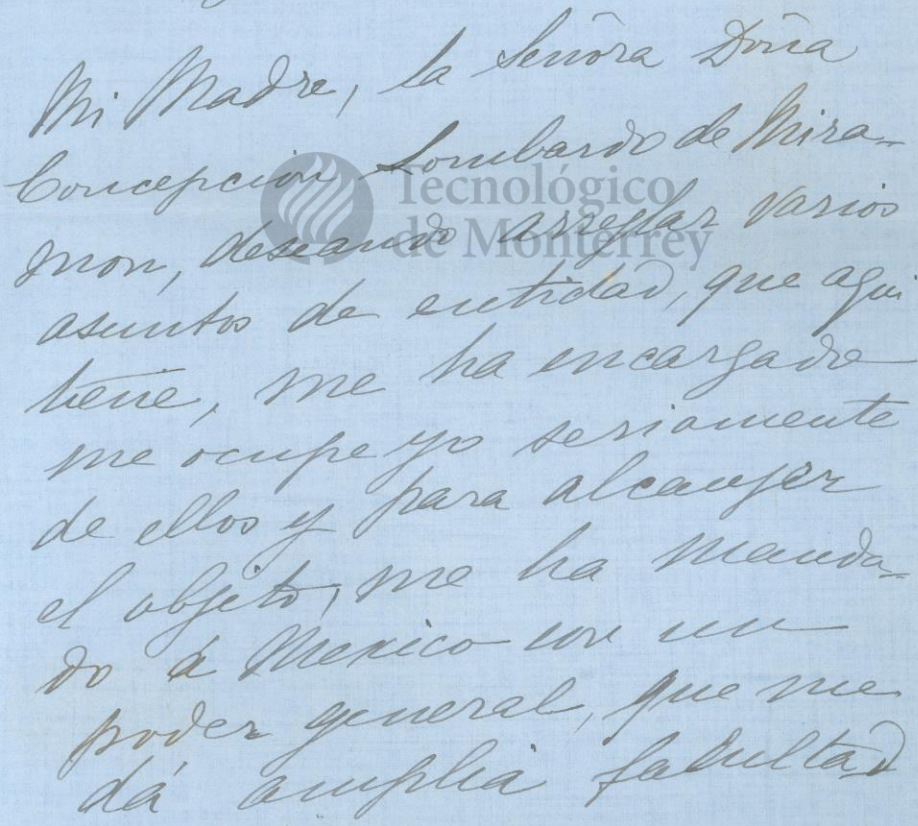 Mi Madre, la Señora Doña
Concepcion Lombardo de Mira-
mon, deseando arreglar varios
asuntos de entidad, que aqui
tiene, me ha encargado
me ocupe yo seriamente
de ellos y para alcanjer
el objeto, me ha manda-
do á Mexico con un
poder general, que me
dá amplia facultad
Tecnológico
de Monterrey